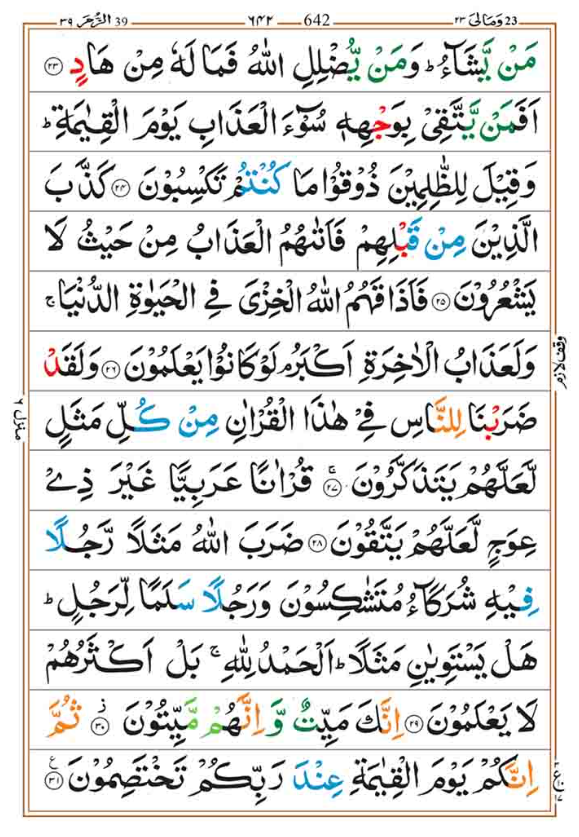 ٢٣ وَمَالِیَ 23 — 642 — ٦٤٢ — 39 اَلزُّمَر ٣٩
مَنۡ یَّشَآءُ ؕ وَمَنۡ یُّضۡلِلِ اللّٰهُ فَمَا لَهٗ مِنۡ هَادٍ ﴿۲۳﴾
اَفَمَنۡ یَّتَّقِیۡ بِوَجۡهِهٖ سُوۡٓءَ الۡعَذَابِ یَوۡمَ الۡقِیٰمَةِ ؕ
وَقِیۡلَ لِلظّٰلِمِیۡنَ ذُوۡقُوۡا مَا کُنۡتُمۡ تَکۡسِبُوۡنَ ﴿۲۴﴾ کَذَّبَ
الَّذِیۡنَ مِنۡ قَبۡلِهِمۡ فَاَتٰٮهُمُ الۡعَذَابُ مِنۡ حَیۡثُ لَا
یَشۡعُرُوۡنَ ﴿۲۵﴾ فَاَذَاقَهُمُ اللّٰهُ الۡخِزۡیَ فِی الۡحَیٰوةِ الدُّنۡیَا ۚ
وَلَعَذَابُ الۡاٰخِرَةِ اَکۡبَرُ ۘ لَوۡ کَانُوۡا یَعۡلَمُوۡنَ ﴿۲۶﴾ وَلَقَدۡ
ضَرَبۡنَا لِلنَّاسِ فِیۡ هٰذَا الۡقُرۡاٰنِ مِنۡ کُلِّ مَثَلٍ
لَّعَلَّهُمۡ یَتَذَکَّرُوۡنَ ۚ ﴿۲۷﴾ قُرۡاٰنًا عَرَبِیًّا غَیۡرَ ذِیۡ
عِوَجٍ لَّعَلَّهُمۡ یَتَّقُوۡنَ ﴿۲۸﴾ ضَرَبَ اللّٰهُ مَثَلًا رَّجُلًا
فِیۡهِ شُرَکَآءُ مُتَشٰکِسُوۡنَ وَرَجُلًا سَلَمًا لِّرَجُلٍ ؕ
هَلۡ یَسۡتَوِیٰنِ مَثَلًا ؕ اَلۡحَمۡدُ لِلّٰهِ ۚ بَلۡ اَکۡثَرُهُمۡ
لَا یَعۡلَمُوۡنَ ﴿۲۹﴾ اِنَّکَ مَیِّتٌ وَّاِنَّهُمۡ مَّیِّتُوۡنَ ۫ ﴿۳۰﴾ ثُمَّ
اِنَّکُمۡ یَوۡمَ الۡقِیٰمَةِ عِنۡدَ رَبِّکُمۡ تَخۡتَصِمُوۡنَ ﴿۳۱﴾ ع
وقف لازم
منزل ٦